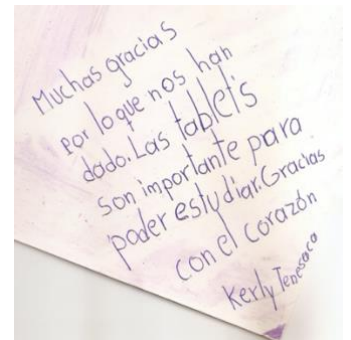 Muchas gracias
por lo que nos han
dado. Las tablet's
son importante para
poder estudiar. Gracias
con el corazón
Kerly Tenesaca